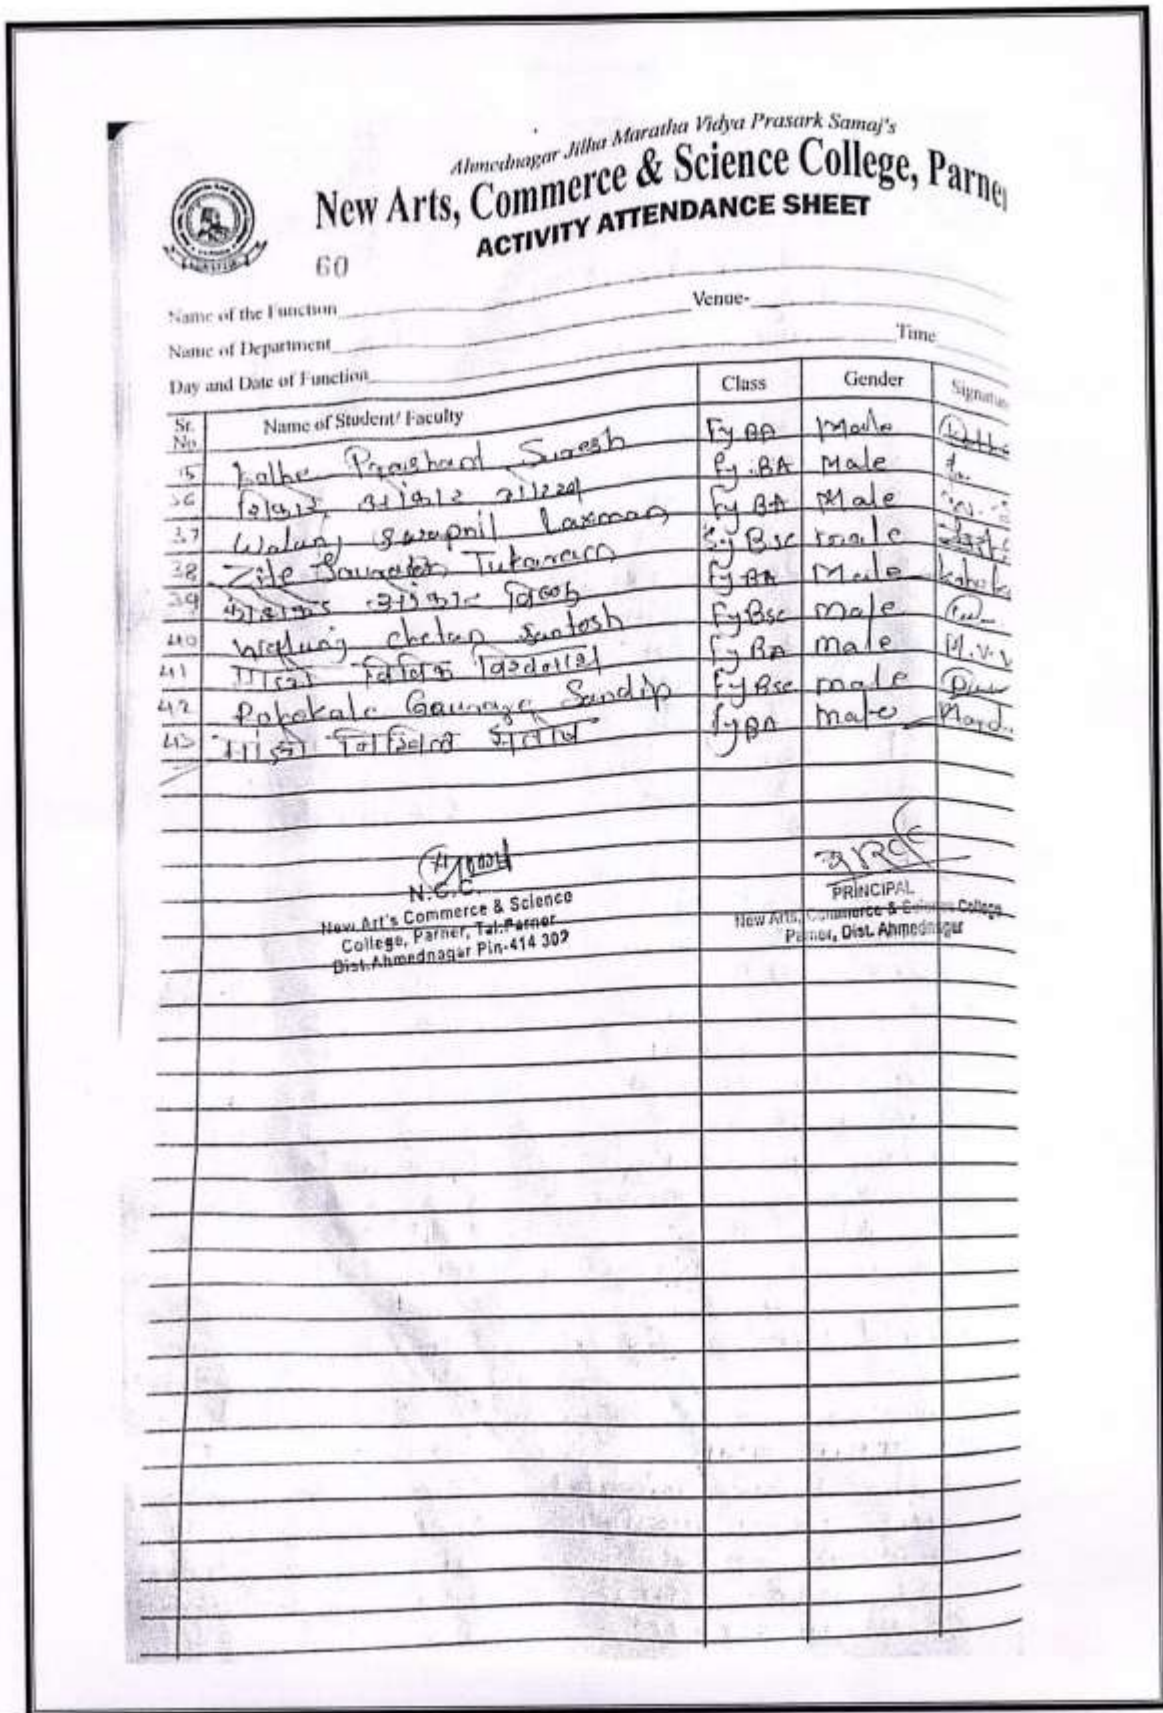 Ahmednagar Jilha Maratha Vidya Prasark Samaj's
New Arts, Commerce & Science College, Parner
ACTIVITY ATTENDANCE SHEET
60
Name of the Function Venue-
Name of Department Time
Day and Date of Function
Sr. No. Name of Student/ Faculty Class Gender Signature
35 Prashant Suresh Fy BA Male
36 Fy.BA Male
37 Walunj Swapnil Laxman Fy BA Male
38 Zite Saurabh Tukaram Sy Bsc male
39 ओंकार Fy BA Male
40 Walunj chetan Santosh Fy Bsc male
41 Fy BA male M.V.V
42 Pathekale Sandip Fy Bsc male
43 निखिल संतोष Fy BA male
N.C.C.
New Art's Commerce & Science
College, Parner, Tal.Parner
Dist.Ahmednagar Pin-414 302
PRINCIPAL
New Arts, Commerce & Science College
Parner, Dist. Ahmednagar